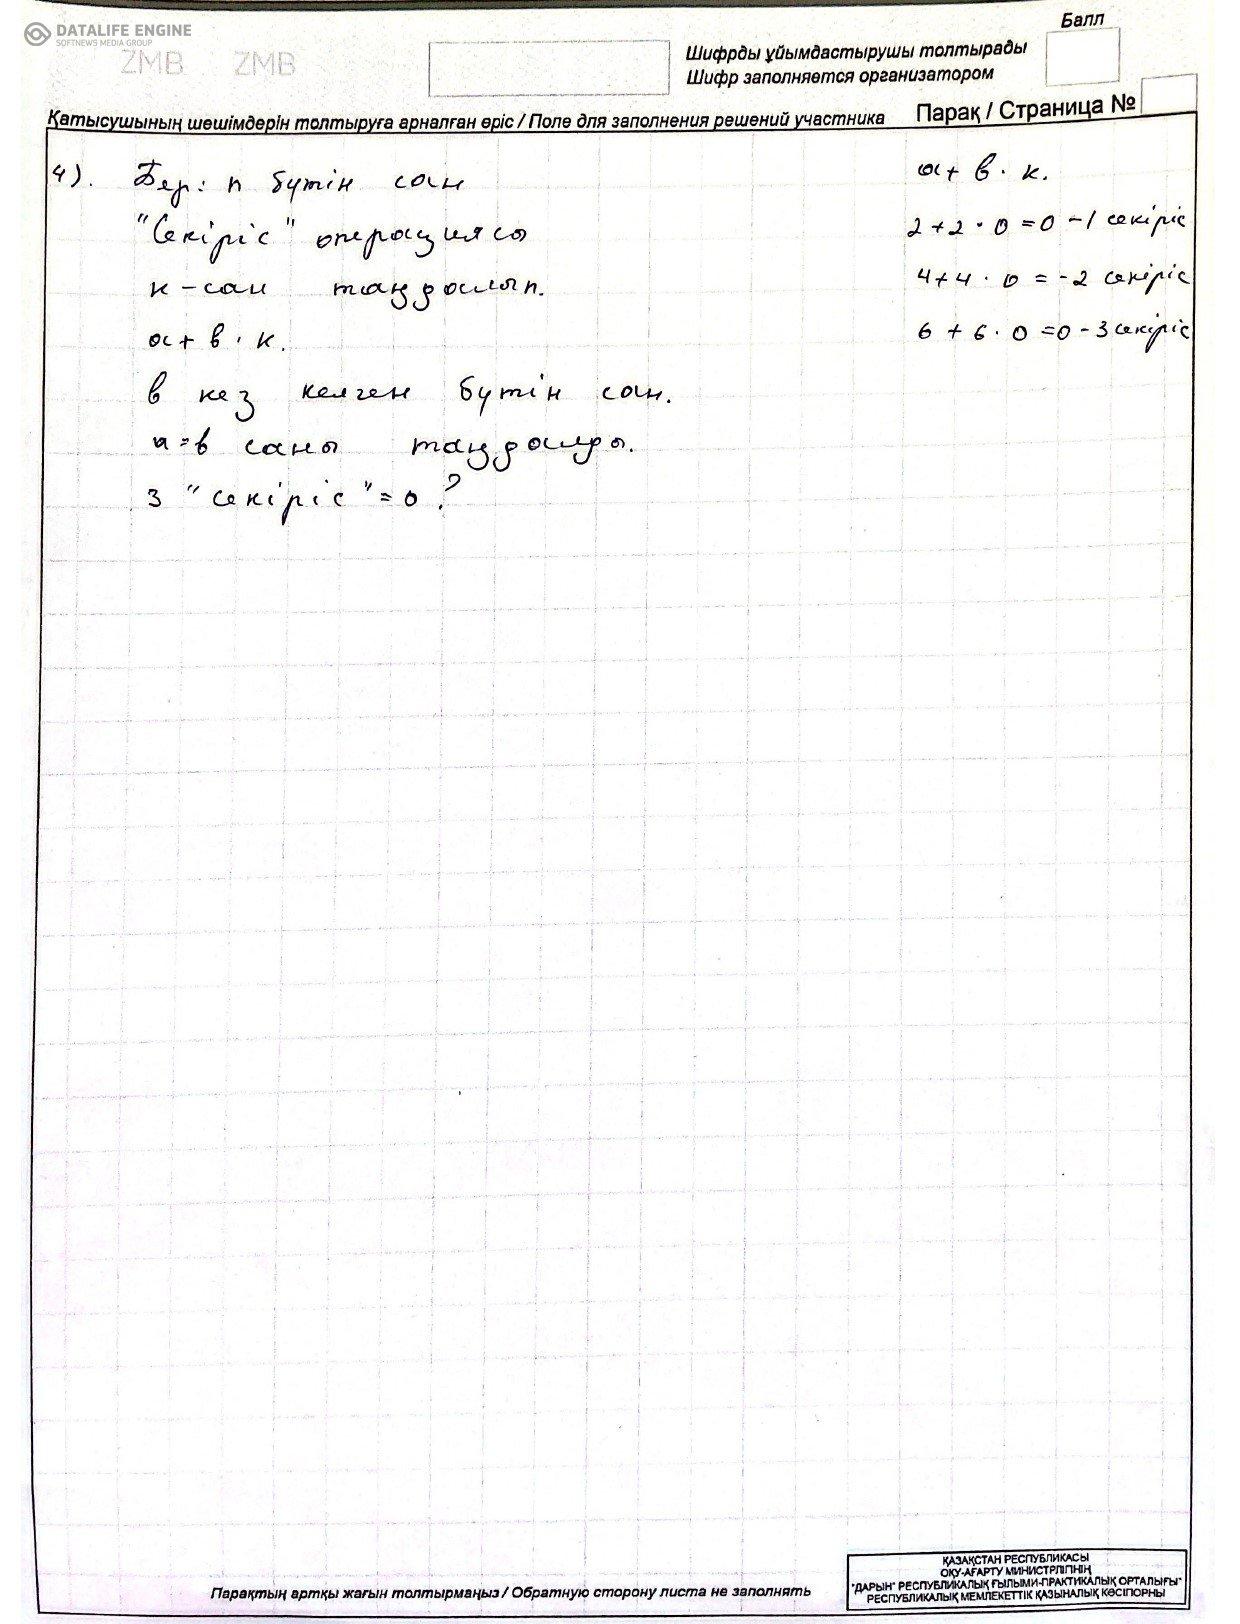 DATALIFE ENGINE
SOFTNEWS MEDIA GROUP
ZMB ZMB
Балл
Шифрды ұйымдастырушы толтырады
Шифр заполняется организатором
Парақ / Страница №
Қатысушының шешімдерін толтыруға арналған өріс / Поле для заполнения решений участника
4). Бер: n бүтін сан
"Секіріс" операциясы
к - сан таңдалып.
а + в · к.
в кез келген бүтін сан.
а = в саны таңдалды.
3 "секіріс" = 0 ?
а + в · к.
2 + 2 · 0 = 0 - 1 секіріс
4 + 4 · 0 = - 2 секіріс
6 + 6 · 0 = 0 - 3 секіріс
Парақтың артқы жағын толтырмаңыз / Обратную сторону листа не заполнять
ҚАЗАҚСТАН РЕСПУБЛИКАСЫ
ОҚУ-АҒАРТУ МИНИСТРЛІГІНІҢ
"ДАРЫН" РЕСПУБЛИКАЛЫҚ ҒЫЛЫМИ-ПРАКТИКАЛЫҚ ОРТАЛЫҒЫ"
РЕСПУБЛИКАЛЫҚ МЕМЛЕКЕТТІК ҚАЗЫНАЛЫҚ КӘСІПОРНЫ